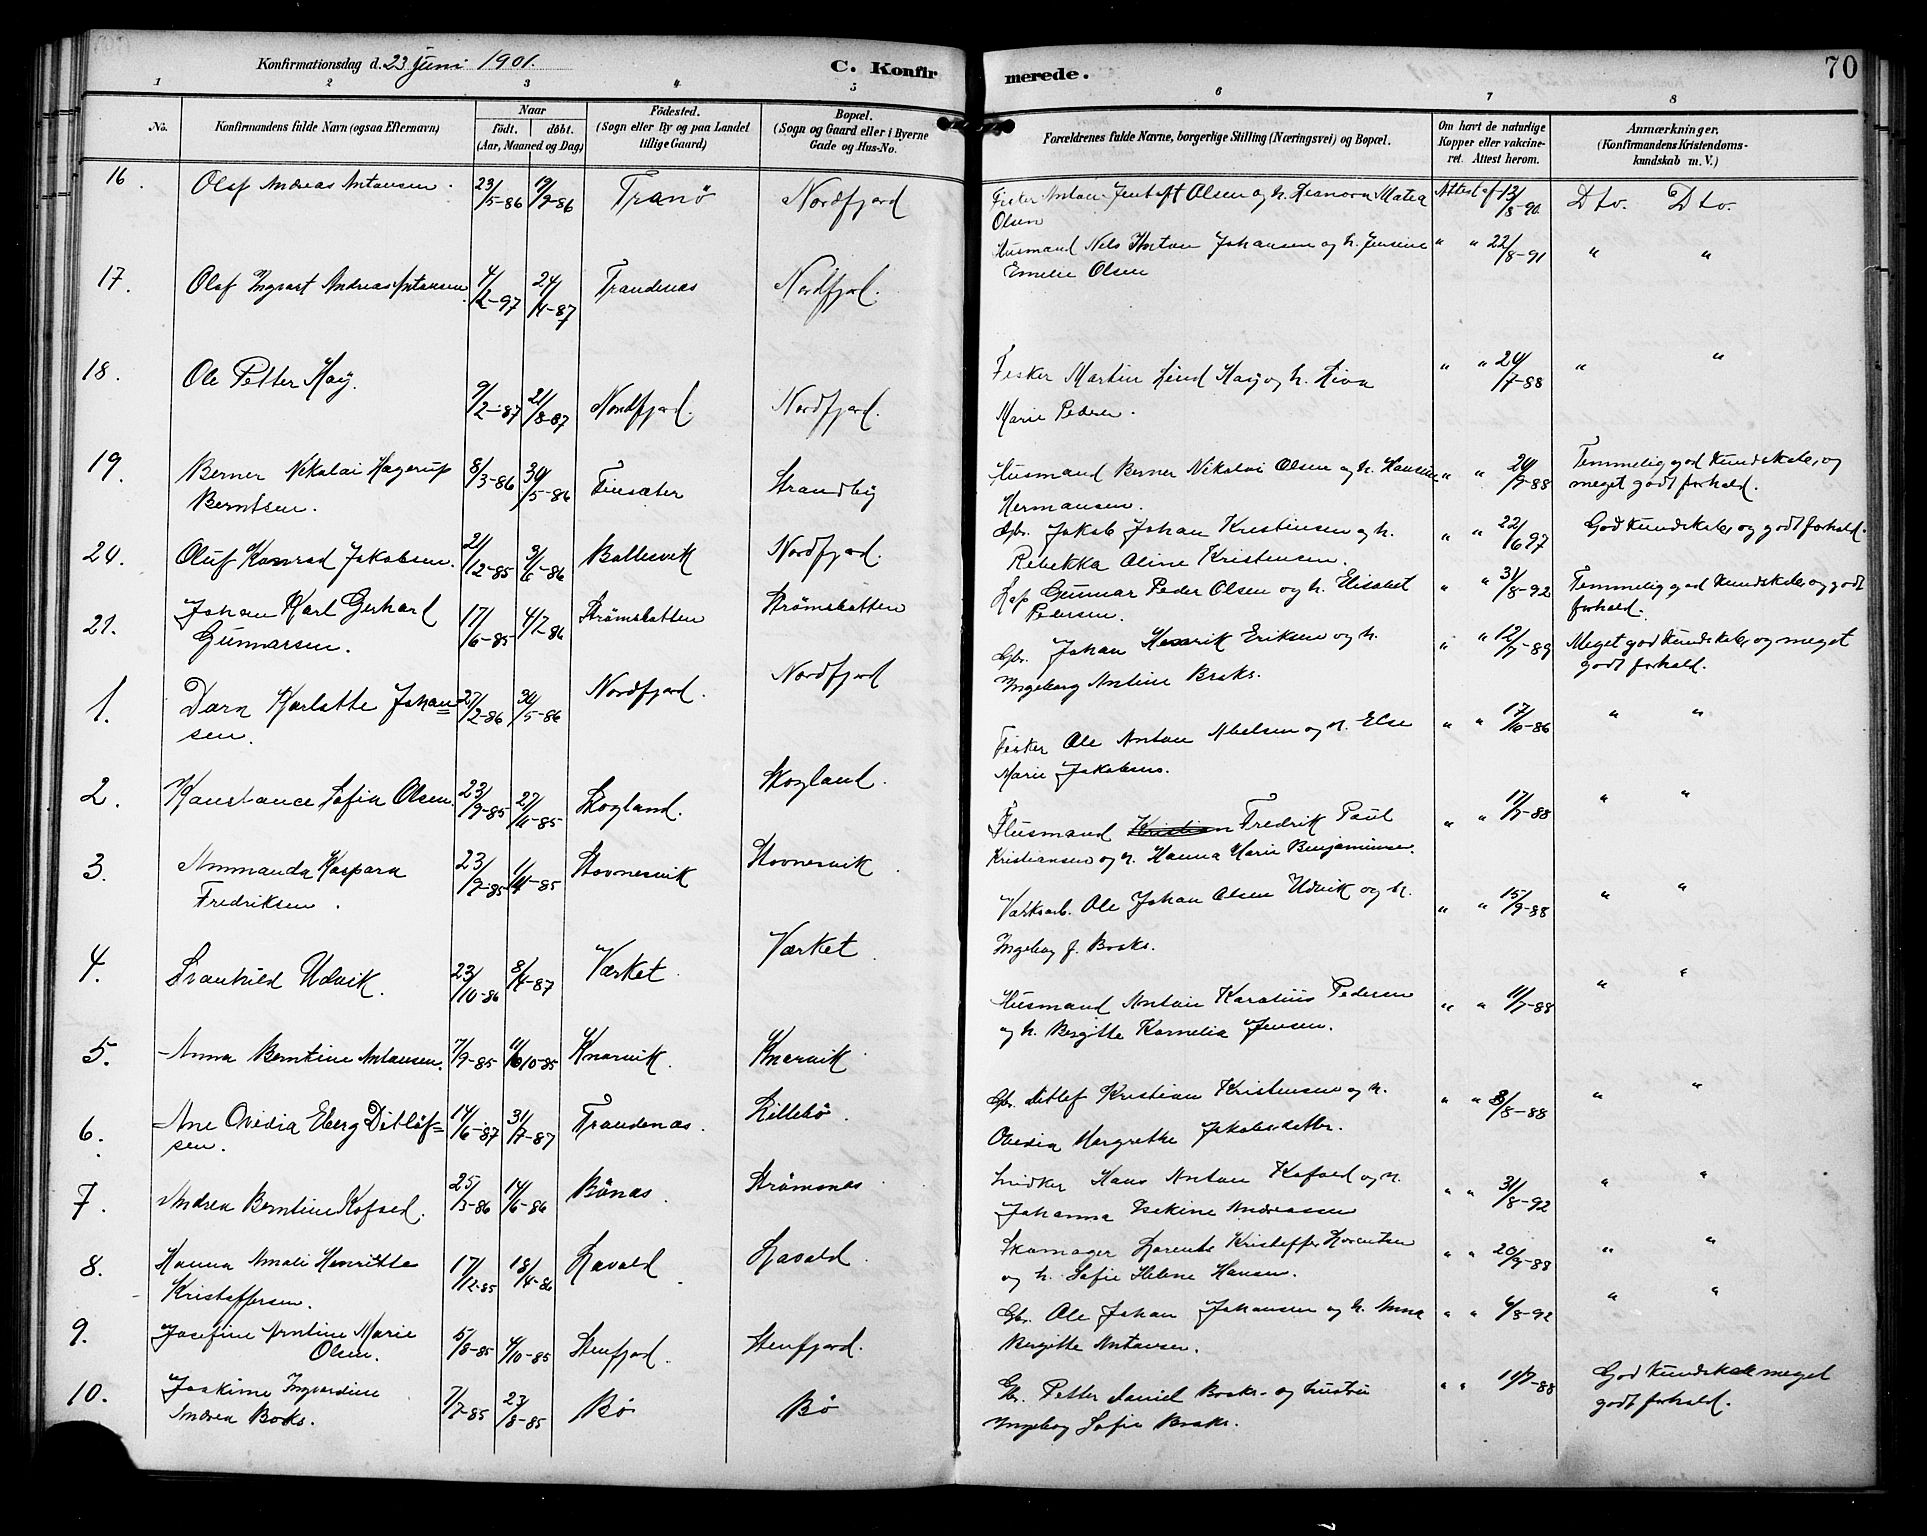 Konfirmationsdag d. 23 juni 1901.
C. Konfirmerede.
70
1 2 3 4 5 6 7 8
No.
Konfirmandens fulde Navn (ogsaa Efternavn)
Naar
födt. döbt.
(Aar, Maaned og Dag)
Födested.
(Sogn eller By og paa Landet
tillige Gaard)
Bopæl.
(Sogn og Gaard eller i Byerne
Gade og Hus-No.
Forældrenes fulde Navne, borgerlige Stilling (Næringsvei) og Bopæl.
Om havt de naturlige
Kopper eller vakcine-
ret. Attest herom.
Anmærkninger,
(Konfirmandens Kristendoms-
kundskab m. V.)
16. Olaf Andreas Antonsen. 23/5-86 19/9-86 Tranö Nordfjord
Fisker Anton Jentoft Olsen og h. Leanora Matea Attest af 13/8-90 Dto. Dto.
Olsen
17. Olaf Ingvart Andreas Antonsen 24/4-87 Trandenæs Nordfjord.
Husmand Nels Anton Johansen og h. Jensine " " 22/8-91 " "
Emelie Olsen
18. Ole Petter Høy. 9/2-87 21/8-87 Nordfjord. Nordfjord.
Fisker Martin Lind Høy og h. Liva " " 24/7-88 " "
Marie Peders.
19. Berner Nikolai Hagerup 8/3-86 30/5-86 Finsæter Strandby
Berntsen.
Husmand Berner Nikolai Olsen og h. Hansine " " 24/9-88 Temmelig god kundskab, og
Hermansen. meget godt forhold.
20. Oluf Konrad Jakobsen. 21/12-85 Ballesvik Nordfjord.
Gbr. Jakob Johan Kristensen og h. " " 22/6 97 God kundskab og godt forhold.
Rebekka Oline Kristensen.
21. Johan Karl Gerhard 17/6-85 4/7-86 Strömsbotten Strömsbotten
Gunnarsen.
Lap Gunnar Peder Olsen og h. Elisabet " " 31/8-92 Temmelig god kundskab og godt
Pedersen. forhold.
1. Dorn Karlotte Johan= 27/2-86 30/5-86 Nordfjord. Nordfjord
sen.
Gbr. Johan Henrik Eriksen og h. " " 12/7-89 Meget god kundskab og meget
Ingeborg Antine Broks. godt forhold.
2. Konstance Sofia Olsen. 23/9-85 Skogland. Skogland.
Fisker Ole Anton Abelsen og h. Else " " 17/10-86 " "
Marie Jakobsens.
3. Ammanda Kaspara 23/9-85 Stovnesvik Stovnesvik.
Fredriksen.
Husmand Kristian Fredrik Paul " " 17/7-88 " "
Kristiansen og h. Hanna Marie Benjaminsen.
4. Svanhild Udvik. 23/10-86 8/4-87 Værket. Værket.
Værksarb. Ole Johan Olsen Udvik og h. " " 15/9-88 " "
Ingebog J. Broks.
5. Anna Berntine Antonsen. 7/9-85 Knarvik. Knarvik
Husmand Anton Karolius Pedersen " " 11/7-88 " "
og h. Bergitte Kornelia Jensen.
6. Ane Ovidia Eberg Ditlöf= 14/6-87 31/7-87 Trandenæs. Lillebö.
sen.
Gbr. Ditlef Kristian Kristensen og h. " " 8/8-88 " "
Ovedia Margrethe Jakobsdatter.
7. Andrea Berntine Kofoed. 25/3-86 14/6-86 Bönæs. Strömsnes
Snidker Hans Anton Kofoed og h. " " 31/8-92 " "
Johanna Esekine Andreassen
8. Hanna Amali Henritte 17/12-85 18/4-86 Lavold. Lavold.
Kristoffersen.
Skomager Lorents Kristoffer Lorentsen " " 20/9-88 " "
og h. Sofie Helene Hansen.
9. Josefine Arntine Marie 5/8-85 4/10-85 Stenfjord. Stenfjord.
Olsen.
Gbr. Ole Johan Johansen og h. Anna " " 6/8-92 " "
Bergitte Antonsen.
10. Joakime Ingvardine 7/7-85 23/8-85 Bö Bö
Andrea Broks.
Gbr. Petter Daniel Broks og hustru " " 10/7-88 God kundskab meget
Ingebog Sofie Broks. godt forhold.